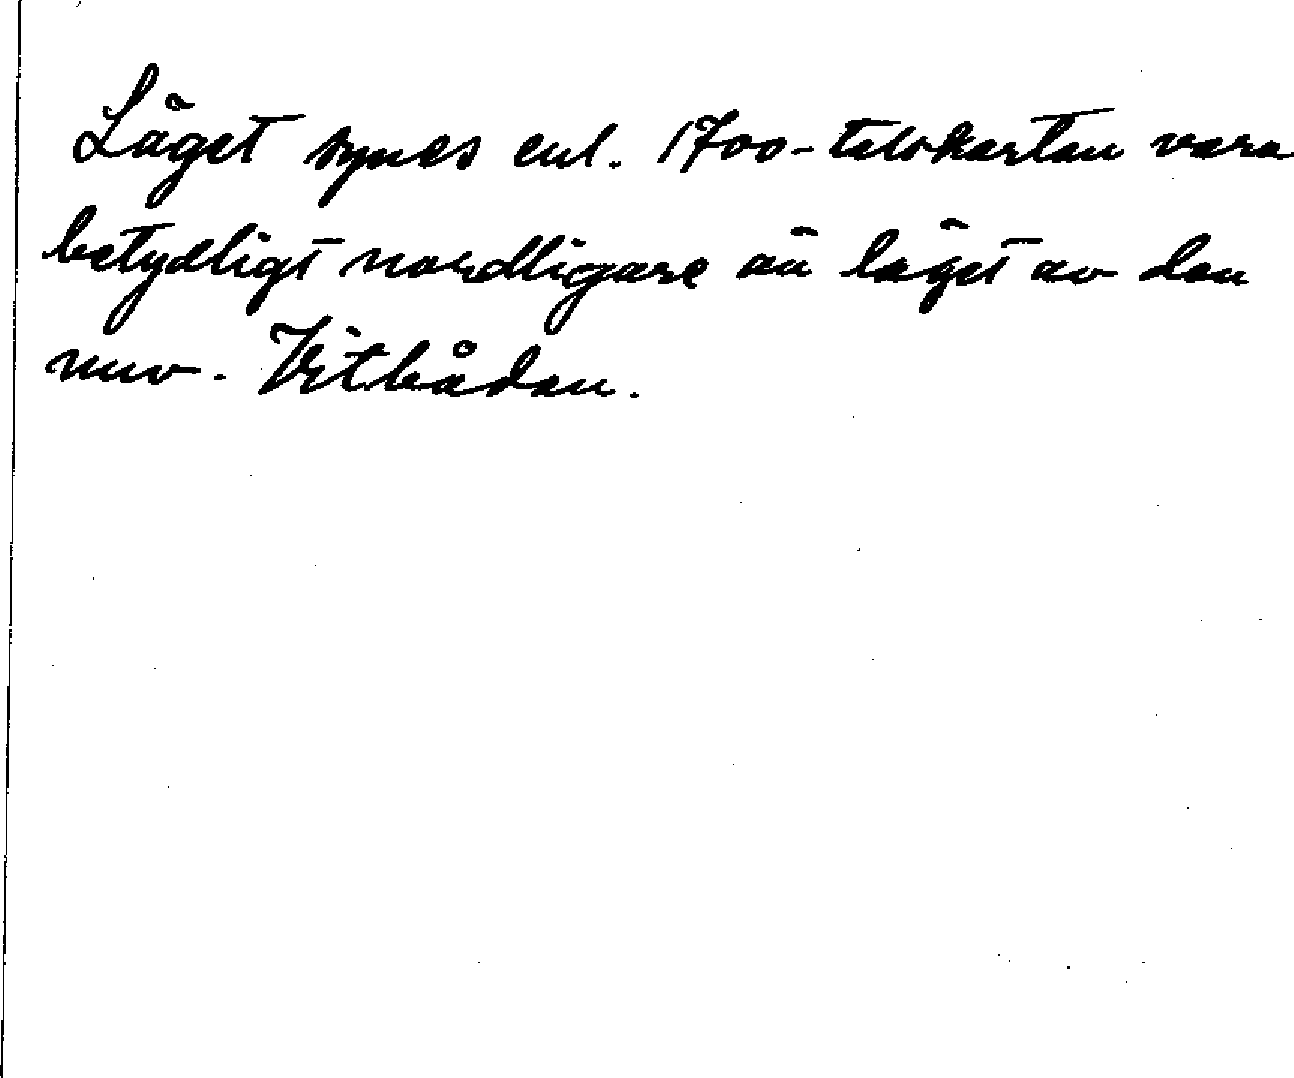 Läget synes enl. 1700-talskartan vara
betydligt nordligare än läget av den
nuv. Vitbådan.